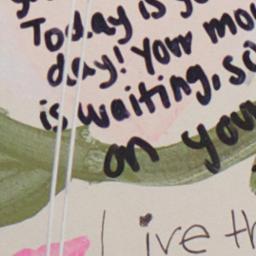 Today is yo
day! Your mo
is waiting, so
on your
Live th